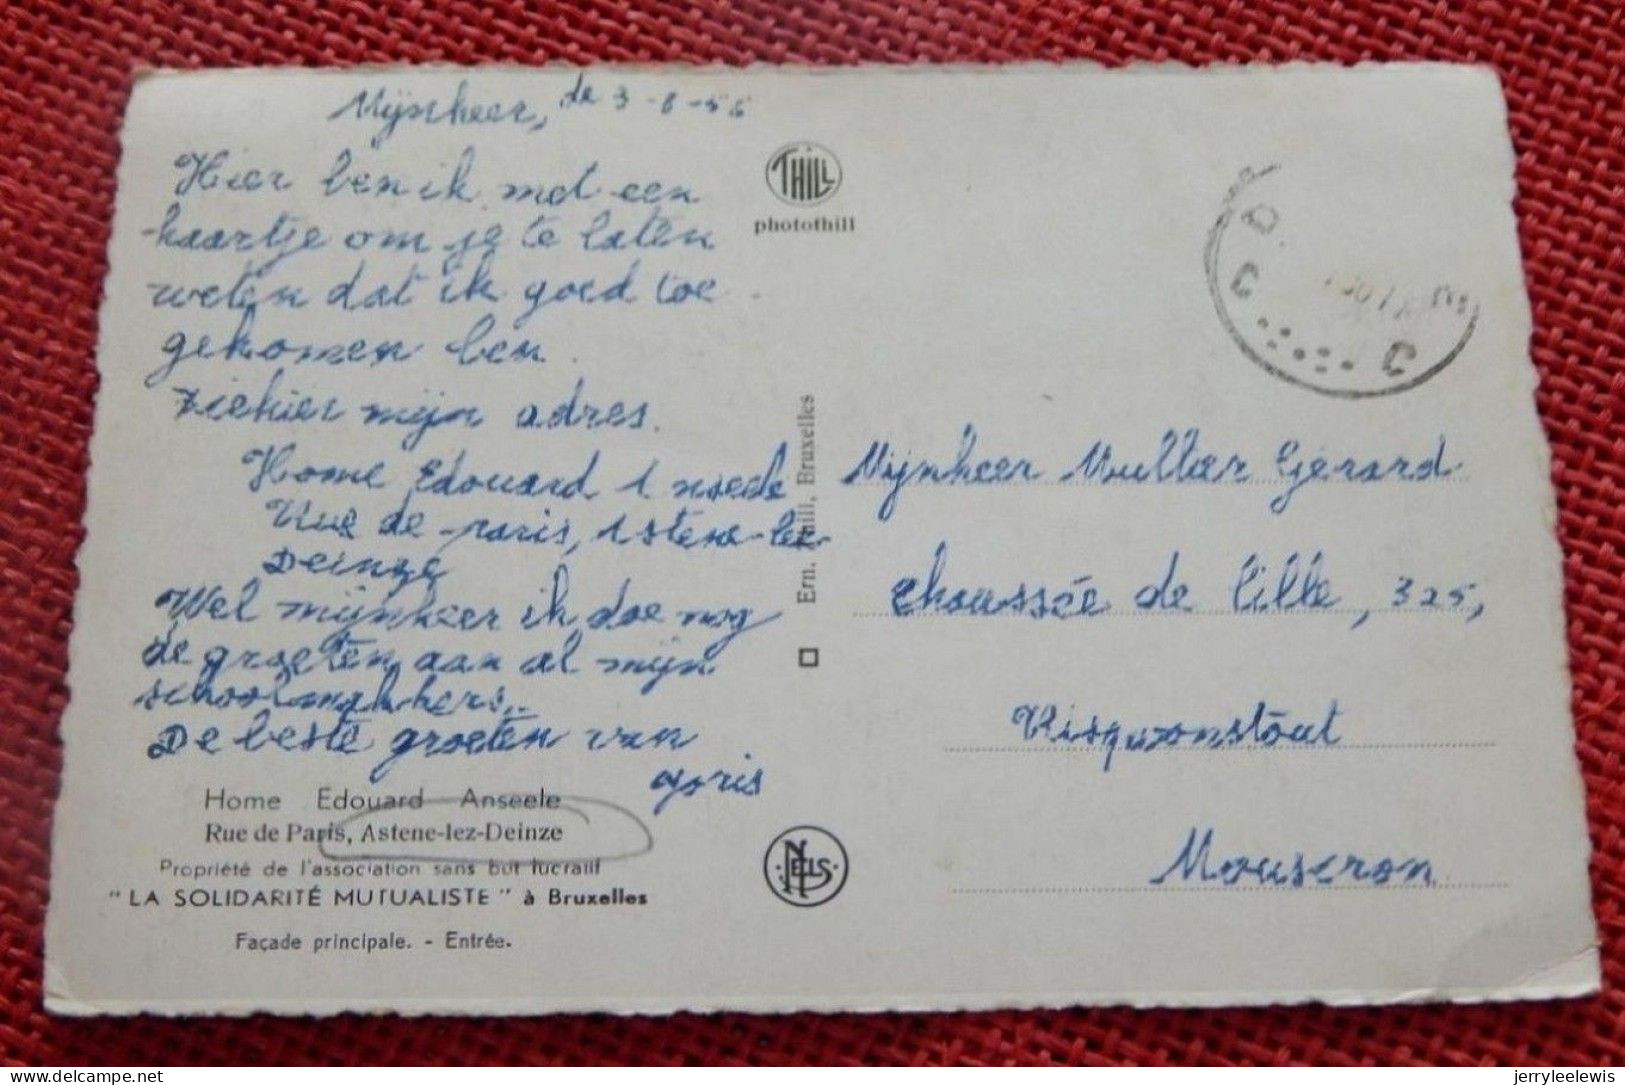 Mijnheer, de 3-8-55
Hier ben ik met een
kaartje om je te laten
weten dat ik goed toe
gekomen ben.
ziehier mijn adres.
Home Edouard Anseele
Rue de paris, Astene-lez-
Deinze
Wel mijnheer ik doe nog
de groeten aan al mijn
schoolmakkers.
De beste groeten van
Joris
Home Edouard Anseele
Rue de Paris, Astene-lez-Deinze
Propriété de l'association sans but lucratif
"LA SOLIDARITÉ MUTUALISTE" à Bruxelles
Façade principale. - Entrée.
THILL
photothill
Ern. Thill, Bruxelles
NELS
D
C C
Mijnheer Mullier Gérard
chaussée de lille, 325,
Risquonstout
Mouscron
jerryleelewis